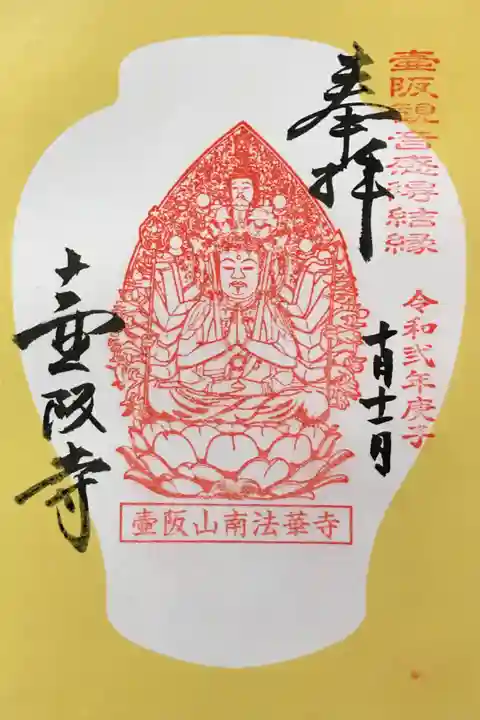 壷阪観音感得結縁
令和弐年庚子
奉拝
十月十一日
壷阪寺
壷阪山南法華寺